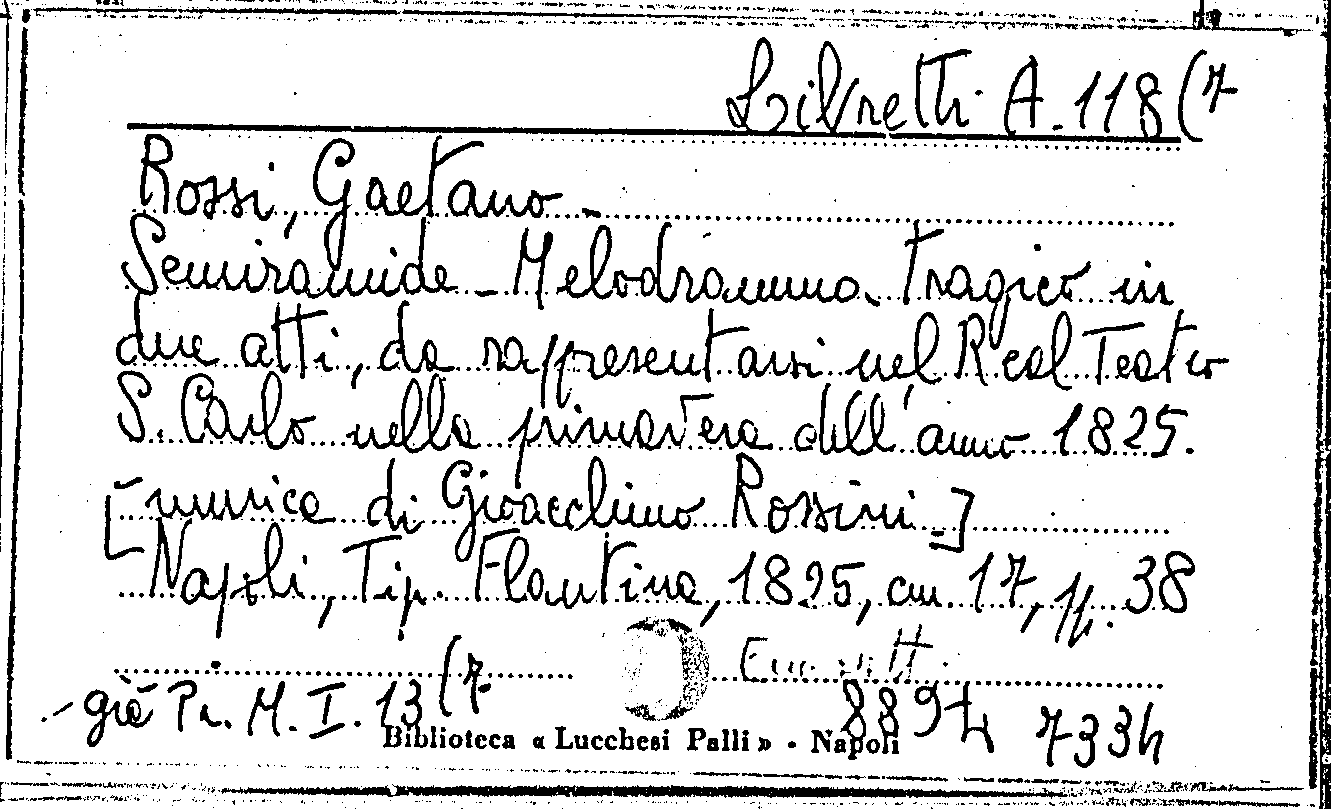 Libretti A. 118(7
Rossi, Gaetano -
Semiramide - Melodramma tragico in
due atti, da rappresentarsi nel Real Teatro
S. Carlo nella primavera dell'anno 1825.
[musica di Gioacchino Rossini.]
Napoli, Tip. Flautina, 1825, cm. 17, pp. 38
- già Pa. M. I. 13(7
8894 7334
Biblioteca « Lucchesi Palli » - Napoli